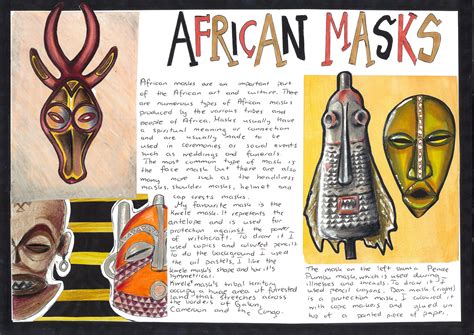 AFRICAN MASKS
African masks are an important part
of the African art and culture. There
are numerous types of African masks
produced by the various tribes and
people of Africa. Masks usually have
a spiritual meaning or connection
and are usually made to be
used in ceremonies or social events
such as weddings and funerals.
The most common type of mask is
the face mask but there are also
many more such as the headdress
masks, shoulder masks, helmet and
cap crests masks.
My favourite mask is the
Kwele mask. It represents the
antelope and is used for
protection against the power
of witchcraft. To draw it I
used copics and coloured pencils
To do the background I used
the oil pastels. I like the
kwele mask's shape and how it's
symmetrical.
Kwele mask's tribal territory
occupy a huge area of forested
land that stretches across
the borders of Gabon,
Cameroon and the Congo.
The mask on the left is a Pende
mask, which is used during
illnesses and threats. To draw it I
used pencil crayons. Dan mask (right)
is a protection mask, I colored it
with copic markers and glued on
top of a painted piece of paper.